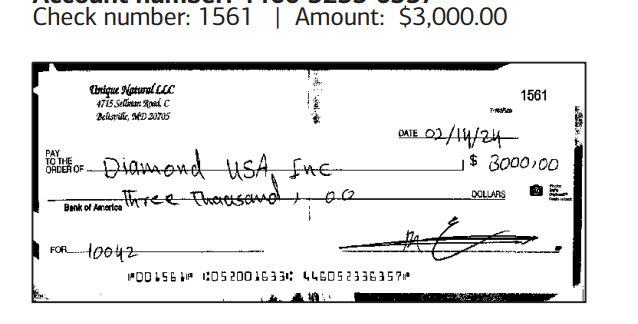 Check number: 1561 | Amount: $3,000.00
Unique Natural LLC
4715 Sellman Road, C
Beltsville, MD 20705
1561
DATE 02/14/24
PAY
TO THE
ORDER OF Diamond USA, Inc $ 3000.00
Three Thousand, 00 DOLLARS
Bank of America
FOR 10042
⑈001561⑈ ⑆052001633⑆ 446052336357⑈